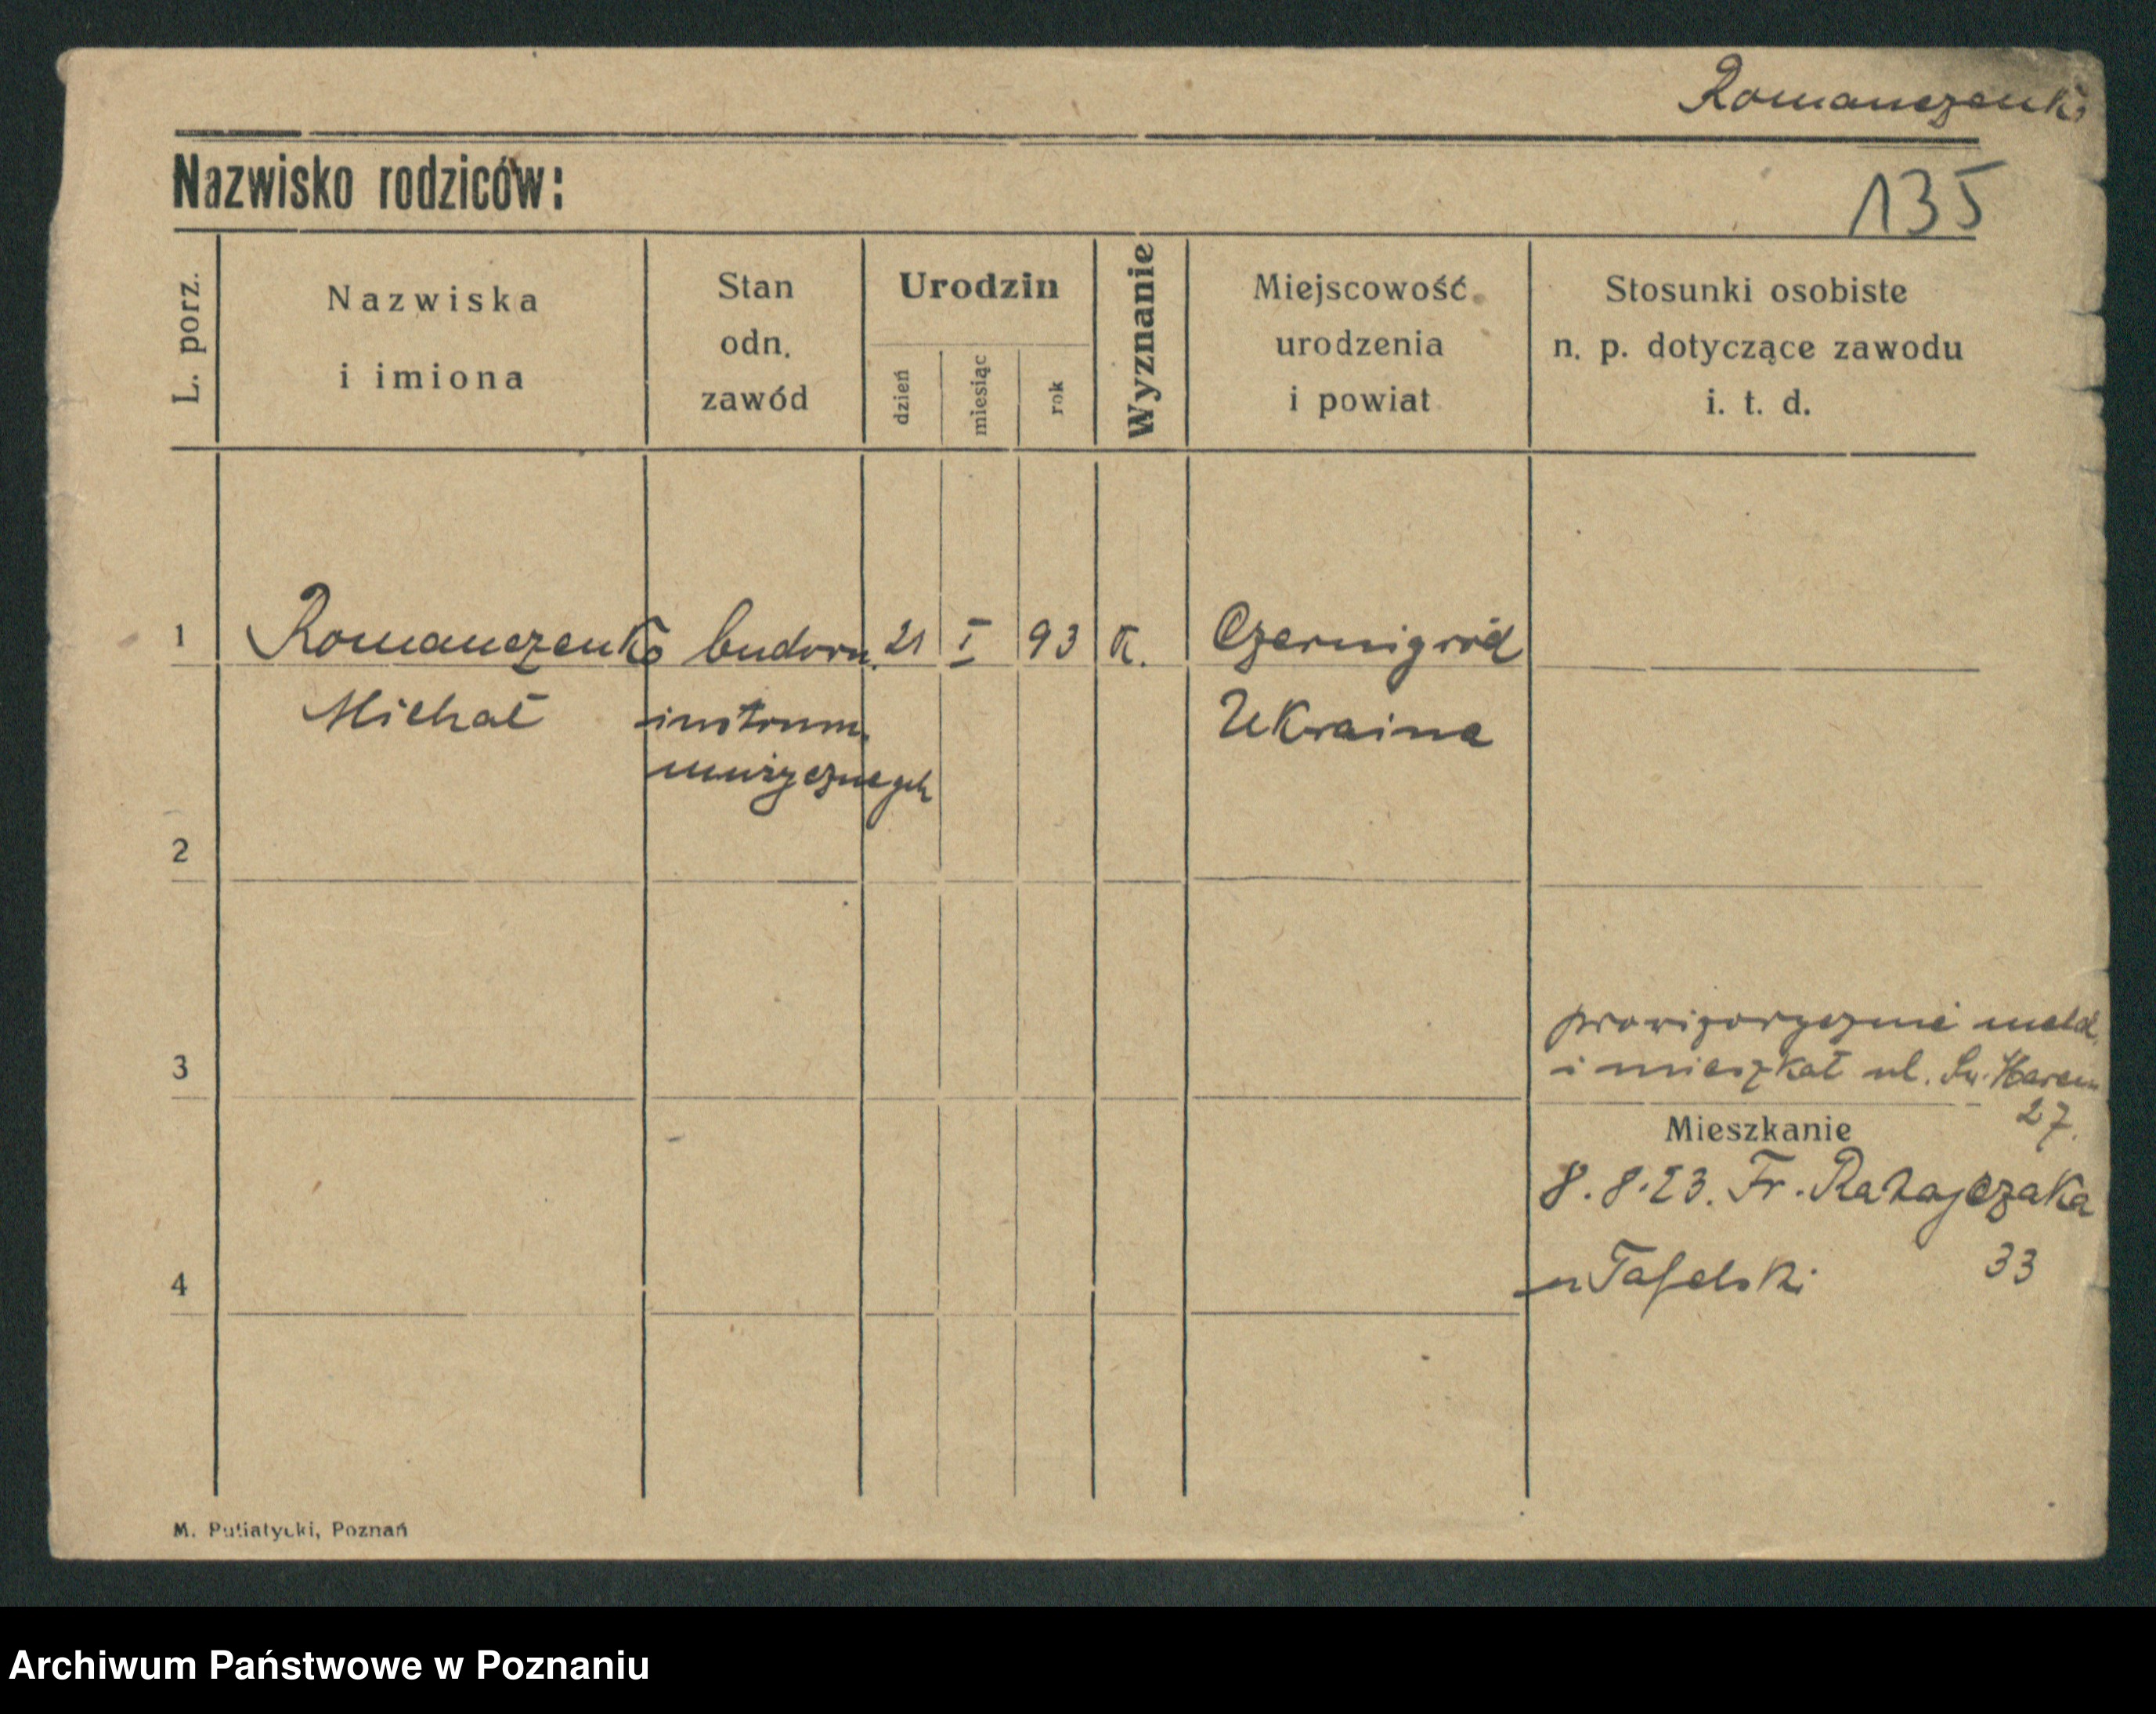 Romanczenko
Nazwisko rodziców:
135
L. porz.
Nazwiska
i imiona
Stan
odn.
zawód
Urodzin
dzień
miesiąc
rok
Wyznanie
Miejscowość
urodzenia
i powiat
Stosunki osobiste
n. p. dotyczące zawodu
i. t. d.
1 Romanczenko budown. 21 I 93 K. Czernigród
Michał instrum. Ukraina
muzycznych
2
prowizorycznie meld.
3 i mieszkał ul. Św. Marcin
27.
Mieszkanie
8.8.23. Fr. Ratajczaka
33
4 u Tafelski
M. Putiatycki, Poznań
Archiwum Państwowe w Poznaniu